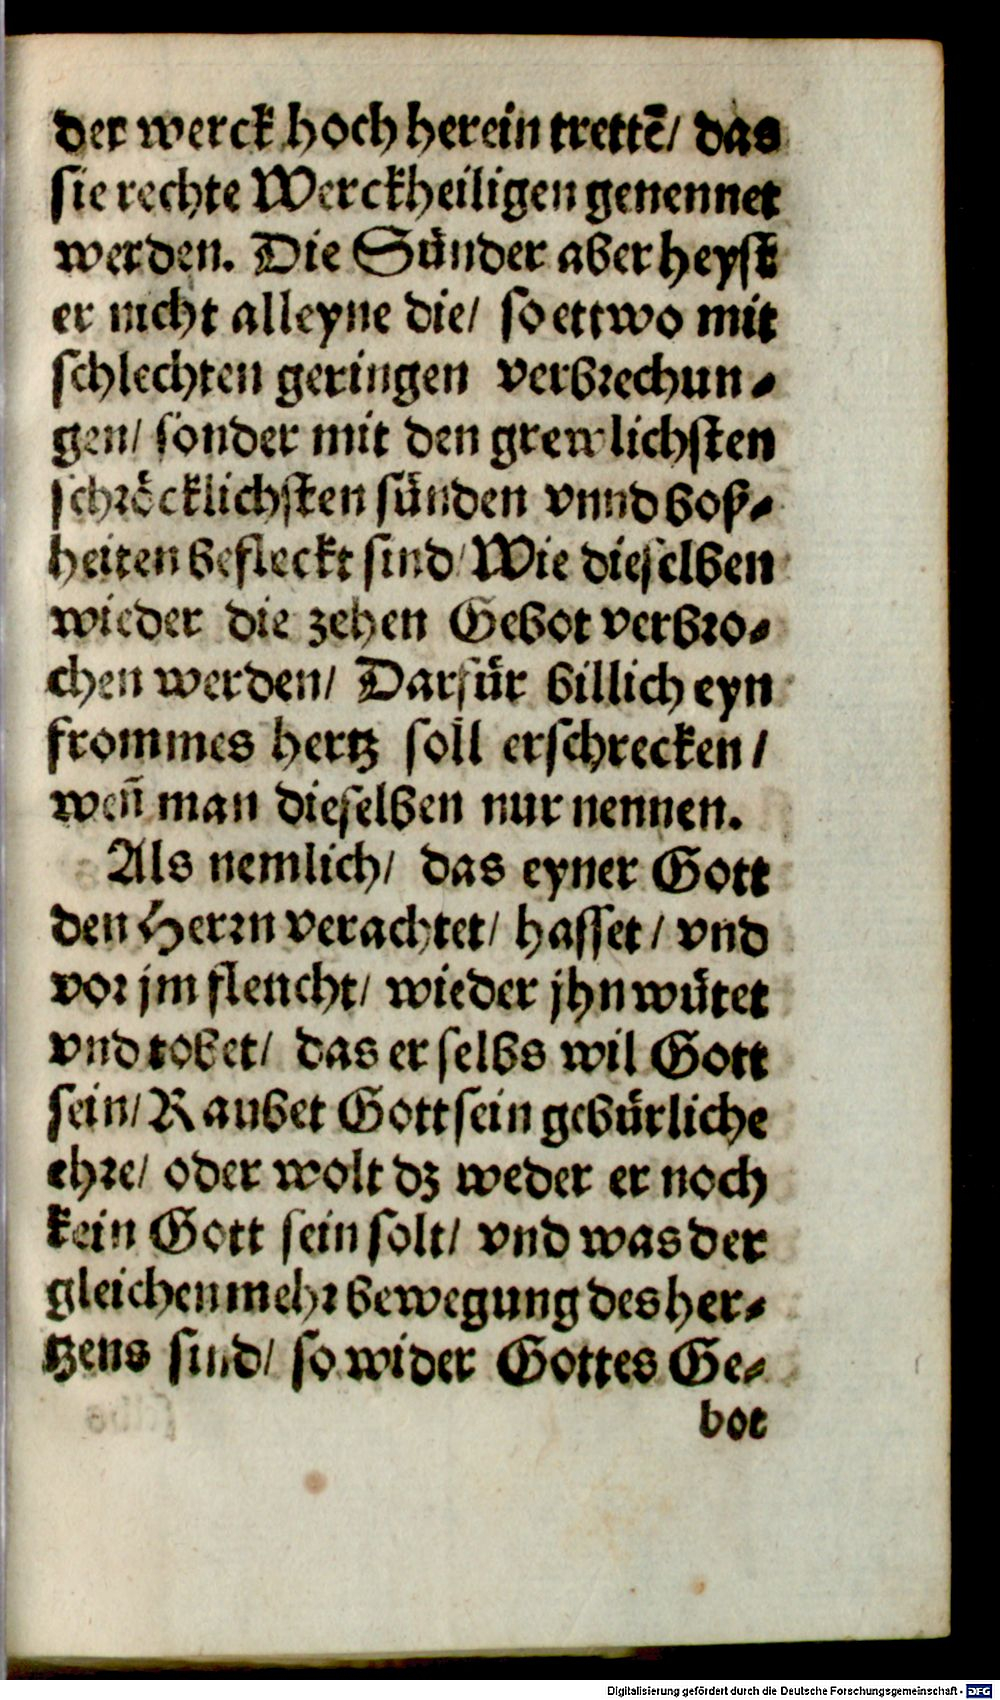 der werck hoch herein trettē/ das
sie rechte Werckheiligen genennet
werden. Die Sünder aber heyst
er nicht alleyne die/ so ettwo mit
schlechten geringen verbrechun-
gen/ sonder mit den grewlichsten
schröcklichsten sünden vnnd boß-
heiten befleckt sind/ Wie dieselben
wieder die zehen Gebot verbro-
chen werden/ Darfür billich eyn
frommes hertz soll erschrecken/
weñ man dieselben nur nennen.
Als nemlich/ das eyner Gott
den Herrn verachtet/ hasset/ vnd
vor jm fleucht/ wieder jhn wütet
vnd tobet/ das er selbs wil Gott
sein/ Raubet Gott sein gebürliche
ehre/ oder wolt dz weder er noch
kein Gott sein solt/ vnd was der
gleichen mehr bewegung des her-
tzens sind/ so wider Gottes Ge-
bot
Digitalisierung gefördert durch die Deutsche Forschungsgemeinschaft - DFG